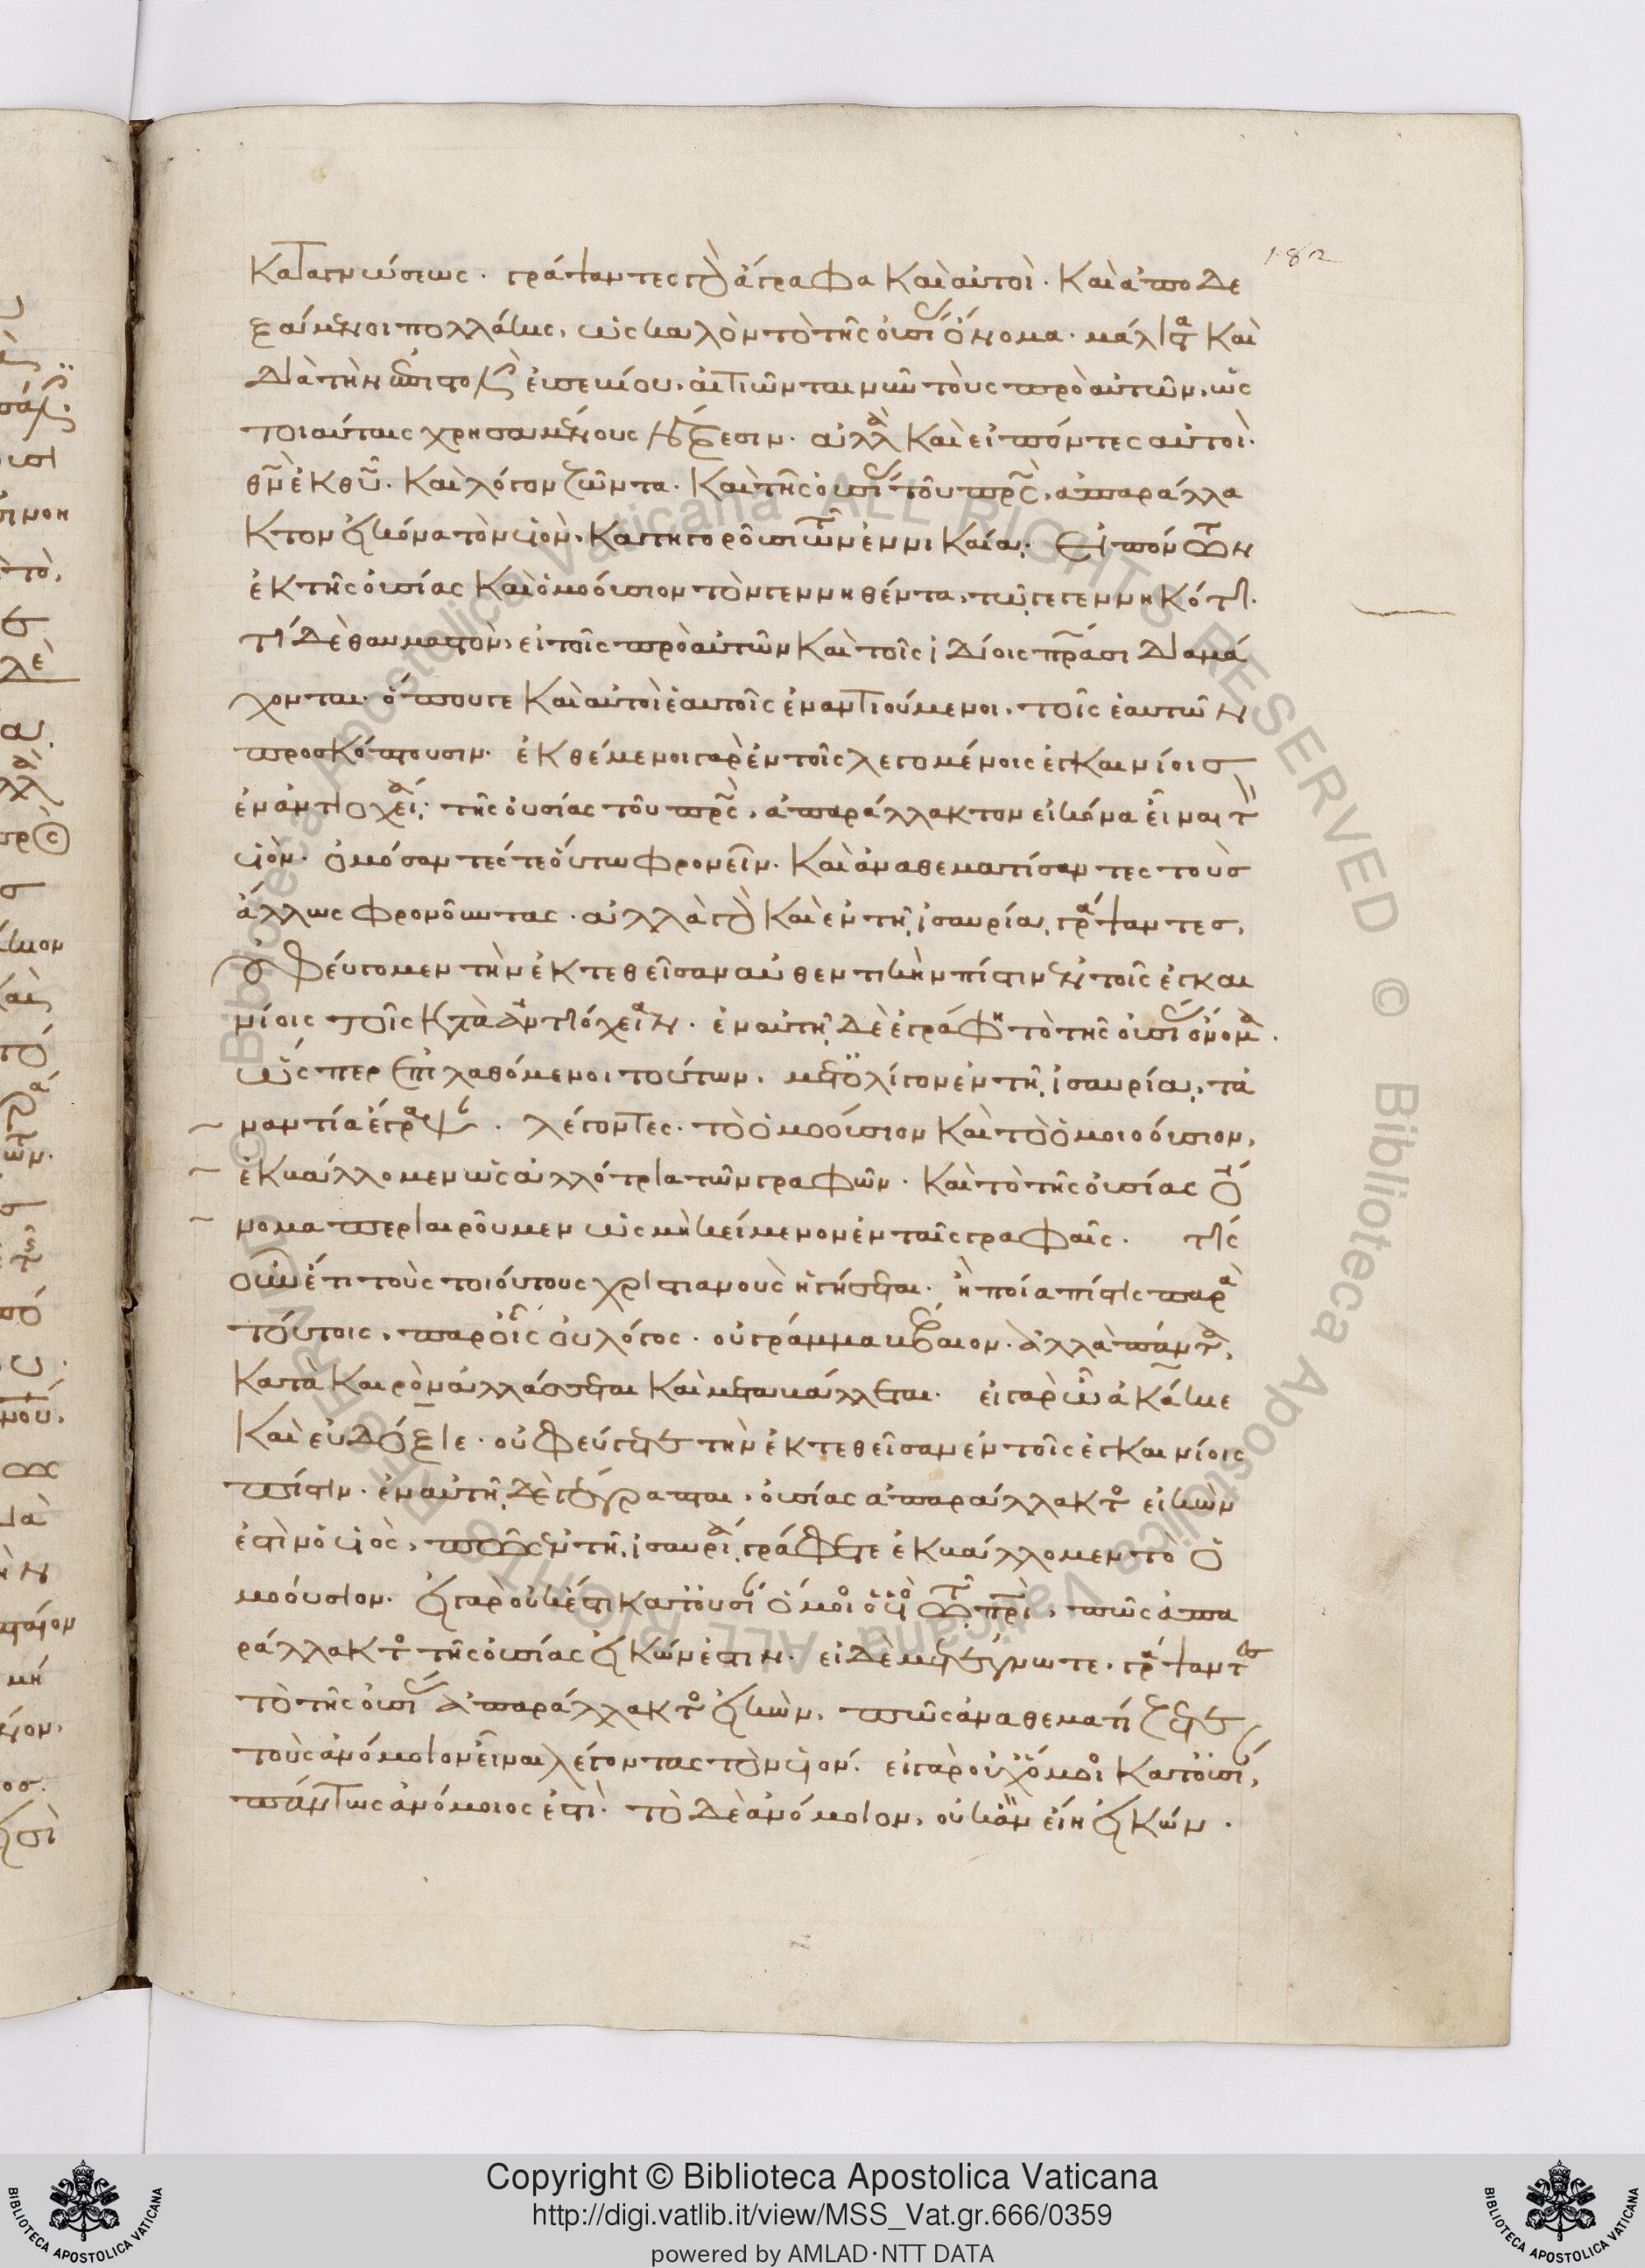 182
καταγνώσεως. γράψαντες γὰρ ἄγραφα καὶ αὐτοὶ. καὶ ἀποδε
ξάμενοι πολλάκις, ὡς καλὸν τὸ τῆς οὐσίας ὄνομα. μάλιστα καὶ
διὰ τὴν ἐπιστολὴν εὐσεβίου. αἰτιῶνται νῦν τοὺς πρὸ αὐτῶν, ὡς
τοιαύταις χρησαμένους λέξεσιν. ἀλλὰ καὶ εἰπόντες αὐτοὶ.
θν ἐκ θυ. καὶ λόγον ζῶντα. καὶ τῆς οὐσίας τοῦ πρς, ἀπαράλλα
κτον εἰκόνα τὸν υἱόν. κατηγοροῦσι τῶν ἐν νικαίᾳ. εἰπόντων
ἐκ τῆς οὐσίας καὶ ὁμοούσιον τὸν γεννηθέντα, τῷ γεγεννηκότι.
τί δὲ θαυμαστὸν, εἰ τοῖς πρὸ αὐτῶν καὶ τοῖς ἰδίοις πρασι διαμά
χονται. ὅπουγε καὶ αὐτοὶ ἑαυτοῖς ἐναντιούμενοι. τοῖς ἑαυτῶν
προσκόπτουσιν. ἐκθέμενοι γὰρ ἐν τοῖς λεγομένοις ἐγκαινίοις
ἐν ἀντιοχείᾳ. τῆς οὐσίας τοῦ πρς, ἀπαράλλακτον εἰκόνα εἶναι τὸν
υἱόν. ὀμόσαντές τε οὕτω φρονεῖν. καὶ ἀναθεματίσαντες τοὺς
ἄλλως φρονοῦντας. ἀλλὰ γὰρ καὶ ἐν τῇ ἰσαυρίᾳ γράψαντες,
οὐ φεύγομεν τὴν ἐκτεθεῖσαν αὐθεντικὴν πίστιν ἐν τοῖς ἐγκαι
νίοις τοῖς κατὰ ἀντιόχειαν. ἐν αὐτῇ δὲ ἐγράφη τὸ τῆς οὐσίας ὄνομα.
ὥσπερ ἐπιλαθόμενοι τούτων. μετ' ὀλίγον ἐν τῇ ἰσαυρίᾳ, τἀ
ναντία ἔγραψαν. λέγοντες. τὸ ὁμοούσιον καὶ τὸ ὁμοιοούσιον,
ἐκβάλλομεν ὡς ἀλλότρια τῶν γραφῶν. καὶ τὸ τῆς οὐσίας ὄ
νομα περιαιροῦμεν ὡς μὴ κείμενον ἐν ταῖς γραφαῖς. τίς
οὖν ἔτι τοὺς τοιούτους χριστιανοὺς ἡγήσεται. ἢ ποία πίστις παρὰ
τούτοις, παρ' οἷς οὐ λόγος. οὐ γράμμα βέβαιον. ἀλλὰ πάντα,
κατὰ καιρὸν ἀλλάσσεται καὶ μεταβάλλεται. εἰ γὰρ ὦ ἀκάκιε
καὶ εὐδόξιε. οὐ φεύγετε τὴν ἐκτεθεῖσαν ἐν τοῖς ἐγκαινίοις
πίστιν. ἐν αὐτῇ δὲ γέγραπται. οὐσίας ἀπαράλλακτος εἰκών
ἐστιν ὁ υἱὸς, πῶς ἐν τῇ ἰσαυρίᾳ γράφετε ἐκβάλλομεν τὸ ὁ
μοούσιον. εἰ γὰρ οὐκ ἔστι κατ' οὐσίαν ὅμοιος ὁ υἱὸς τῷ πρι, πῶς ἀπα
ράλλακτος τῆς οὐσίας εἰκών ἐστιν. εἰ δὲ μετέγνωτε. γράψαντες
τὸ τῆς οὐσίας ἀπαράλλακτος εἰκὼν. πῶς ἀναθεματίζετε
τοὺς ἀνόμοιον εἶναι λέγοντας τὸν υἱόν. εἰ γὰρ οὐχ' ὅμοιος κατ' οὐσίαν,
πάντως ἀνόμοιος ἐστὶ. τὸ δὲ ἀνόμοιον, οὐκ ἂν εἴη εἰκών.
© Biblioteca Apostolica Vaticana ALL RIGHTS RESERVED © Biblioteca Apostolica Vaticana ALL RIGHTS RESERVED
Copyright © Biblioteca Apostolica Vaticana
http://digi.vatlib.it/view/MSS_Vat.gr.666/0359
powered by AMLAD·NTT DATA
BIBLIOTECA APOSTOLICA VATICANA
BIBLIOTECA APOSTOLICA VATICANA